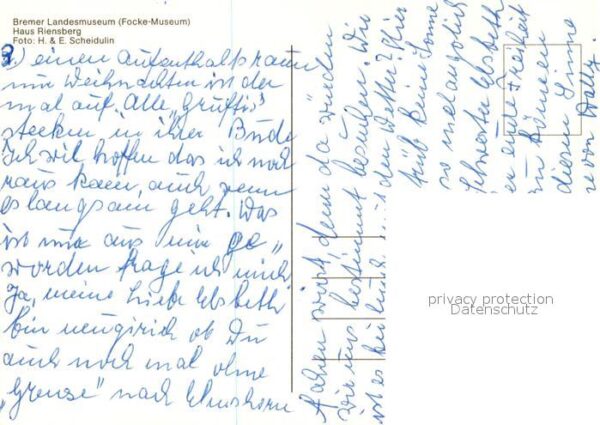 Bremer Landesmuseum (Focke-Museum)
Haus Riensberg
Foto: H. & E. Scheidulin
2.) einen Aufenthaltsraum
nur Weihnachten ist der
mal auf. Alle „Gruftis"
stecken in ihrer Bude
Ich will hoffen das ich noch
raus kann, auch wenn
es langsam geht. Was
ist nur aus mir ge„
worden frage ich mich
Ja, meine liebe Elsbeth
bin neugirich ob Du
auch noch mal ohne
„Grenze" nach Elmshorn
fahren wirst, denn da würden
wir uns bestimmt besuchen. Wie
ist es bei Euch mit dem Wetter? Hier
trüb keine Sonne
so melangolich
Schwester Elsbeth
Freiheit
zu können
diesem Sinne
von Wally
privacy protection
Datenschutz